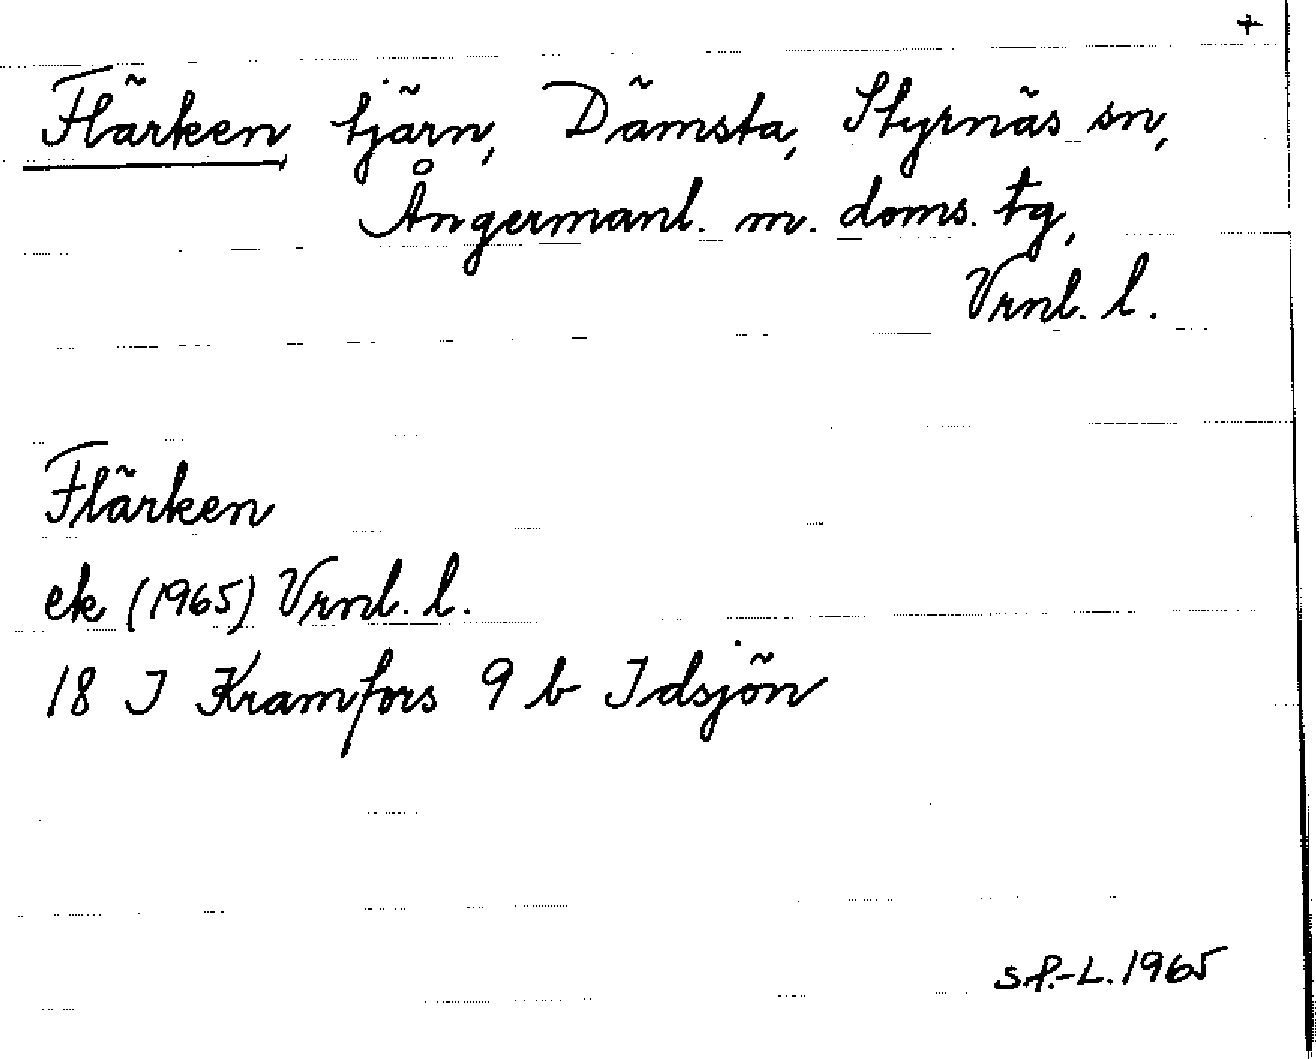 +
Flärken tjärn, Dämsta, Styrnäs sn,
Ångermanl. m. doms. tg,
Vrnl. l.
Flärken
ek (1965) Vrnl. l.
18 I Kramfors 9 b Idsjön
S.P.-L. 1965